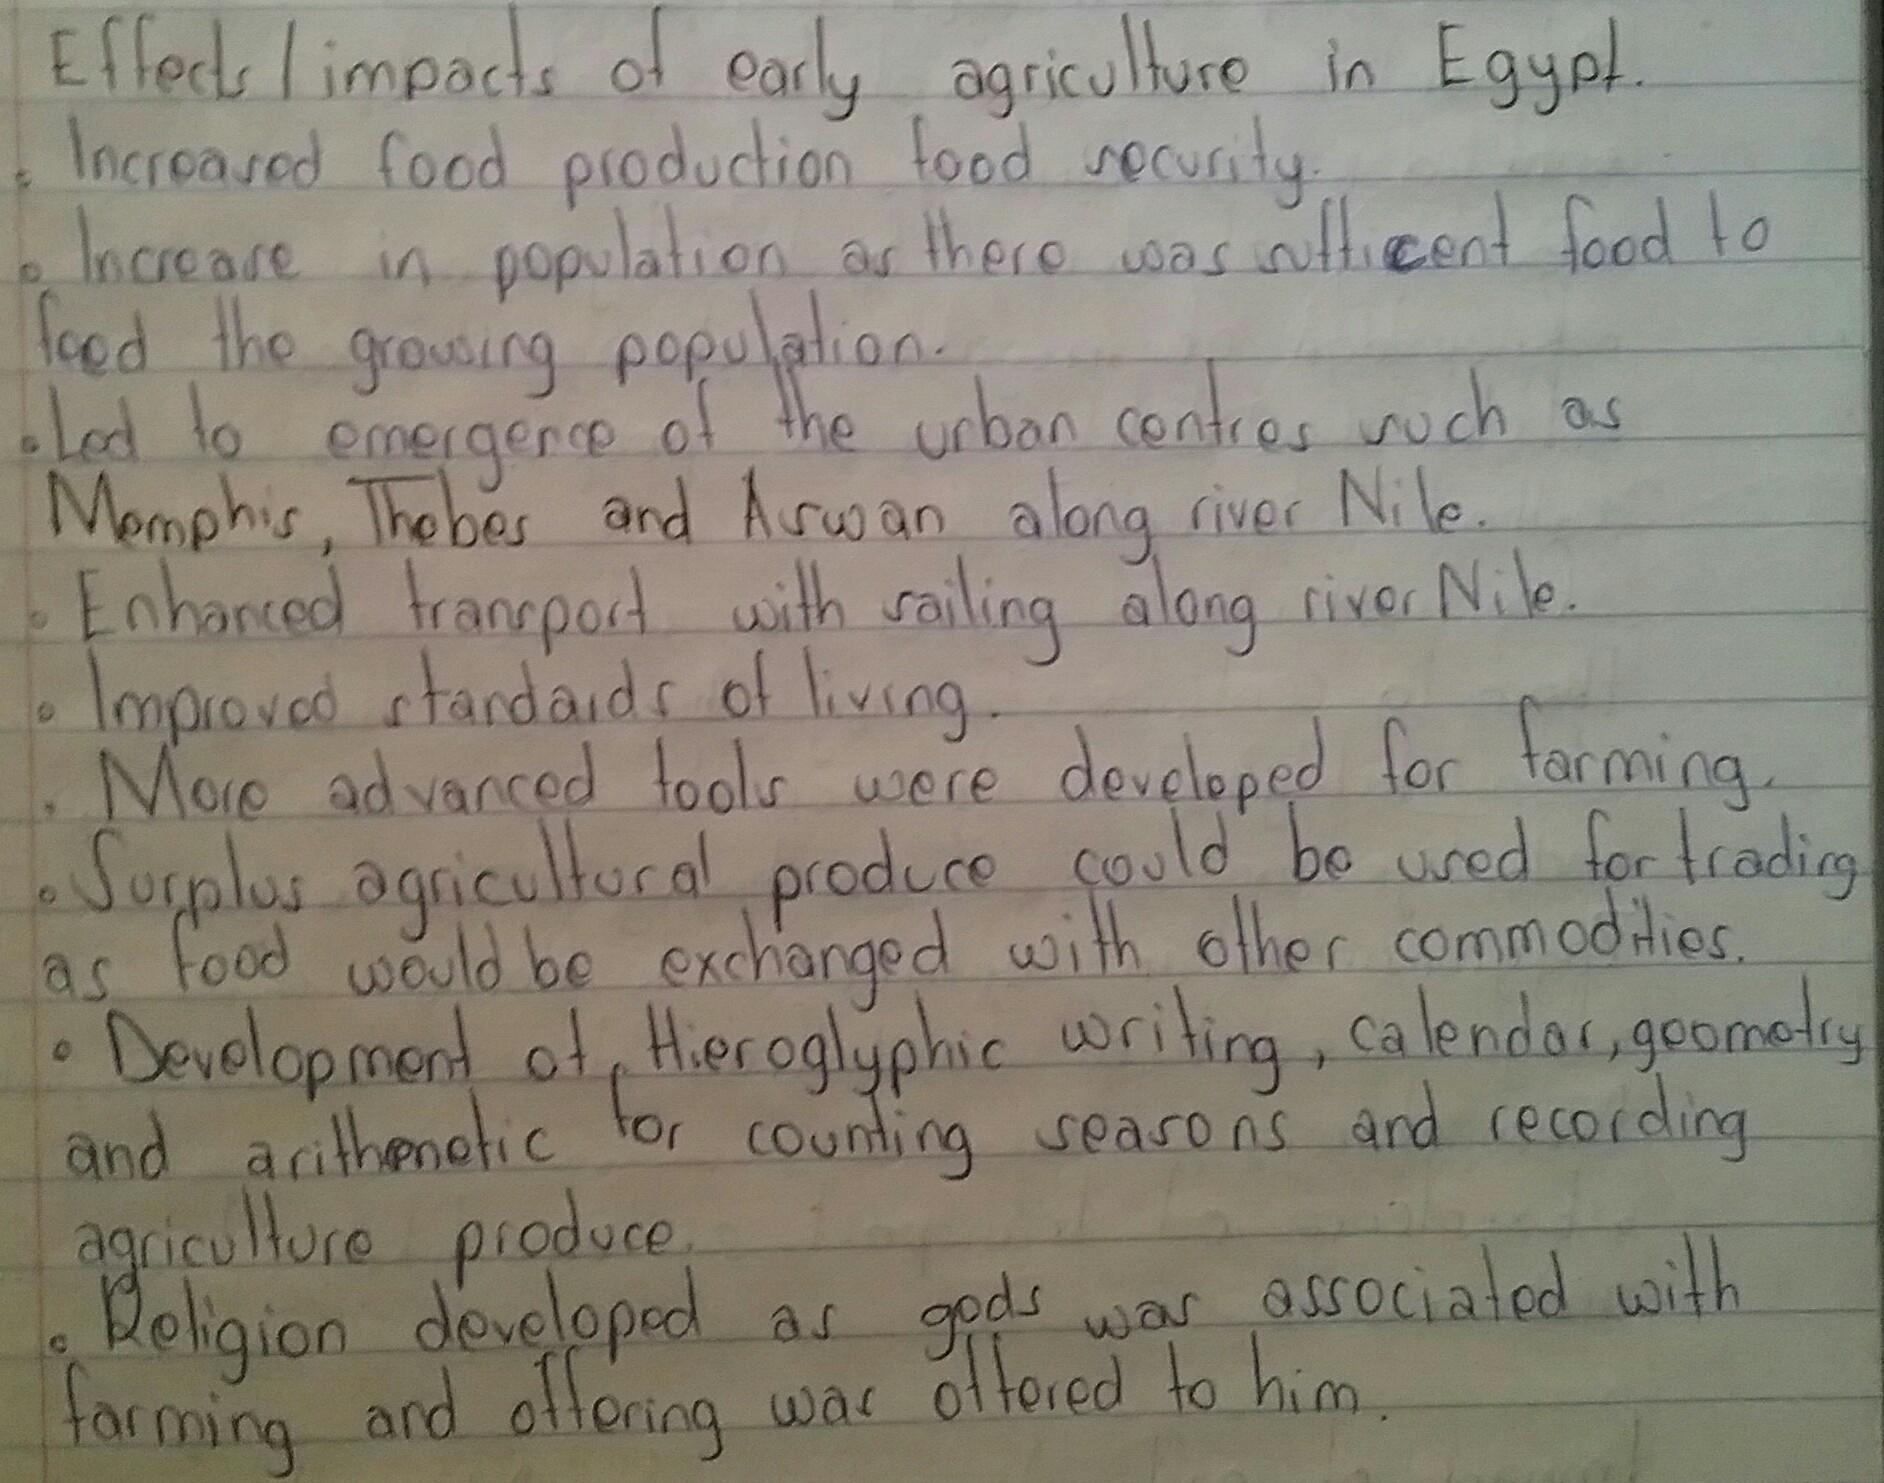 Effects / impacts of early agriculture in Egypt.
• Increased food production food security.
• Increase in population as there was sufficent food to
feed the growing population.
• Led to emergence of the urban centres such as
Memphis, Thebes and Aswan along river Nile.
• Enhanced transport with sailing along river Nile.
• Improved standards of living.
• More advanced tools were developed for farming.
• Surplus agricultural produce could be used for trading
as food would be exchanged with other commodities.
• Development of Hieroglyphic writing, calendar, geometry
and arithenetic for counting seasons and recording
agriculture produce.
• Religion developed as gods was associated with
farming and offering was offered to him.